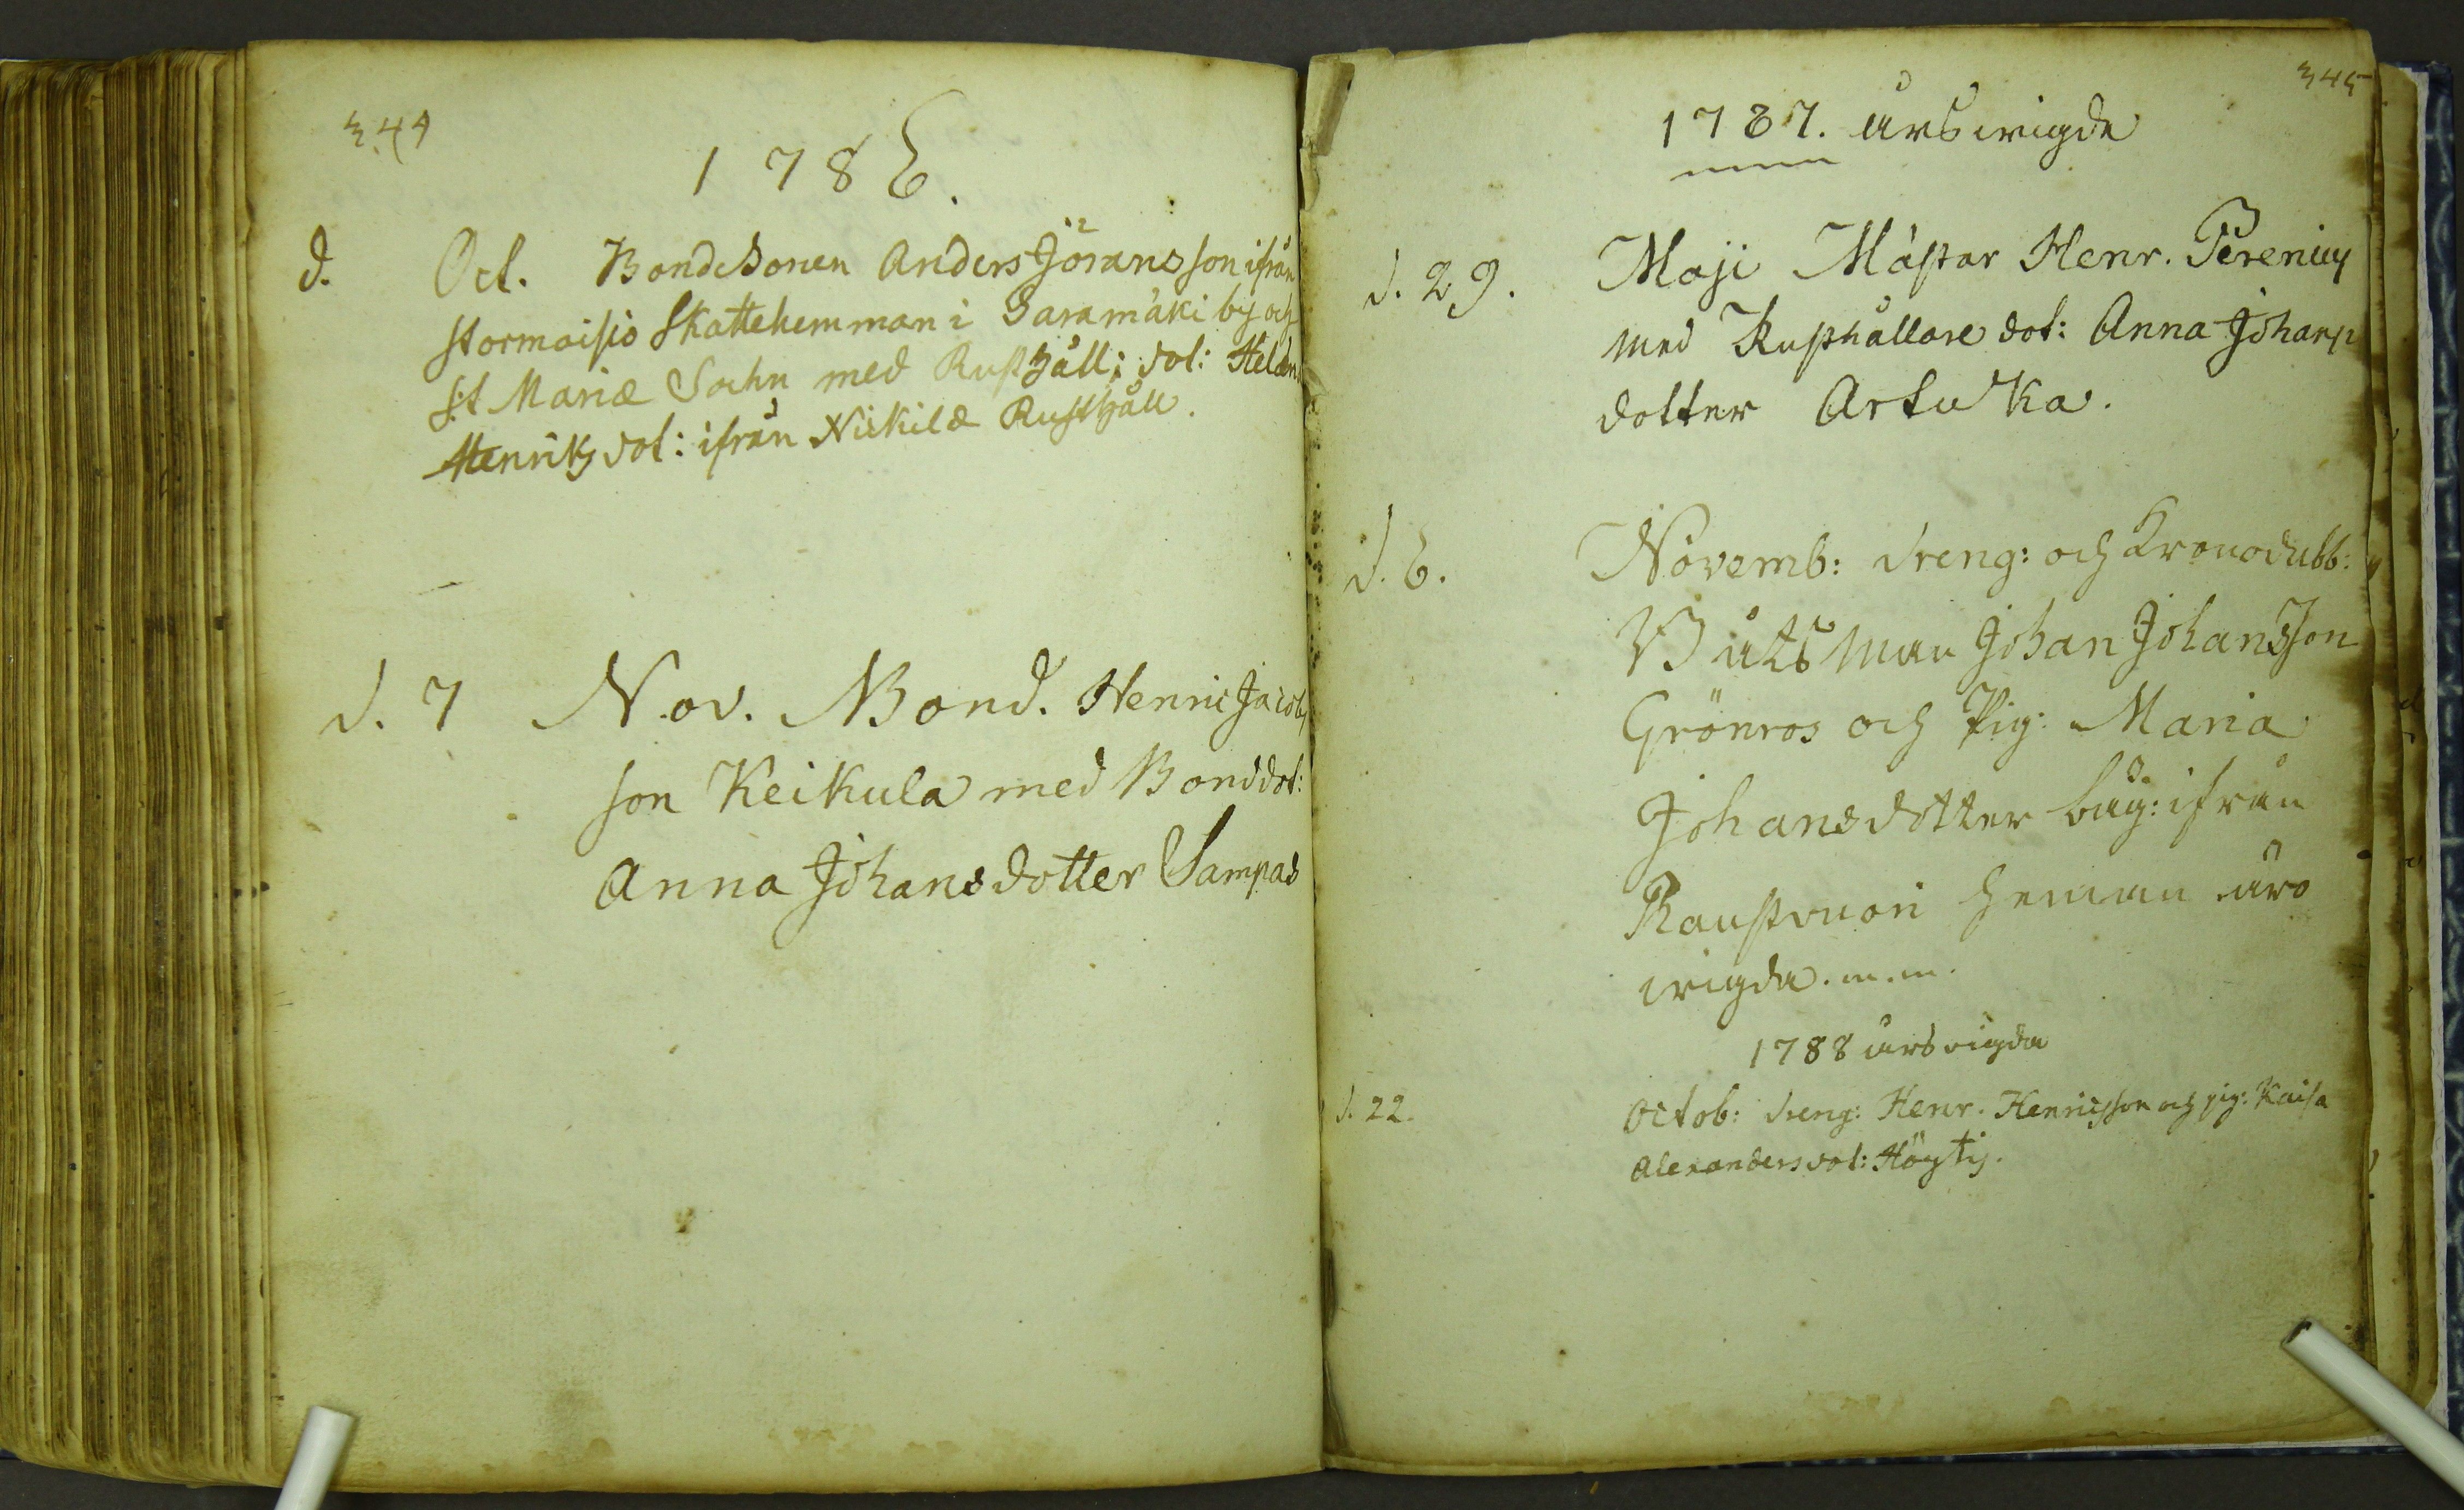 344
1786.
d. Oct. Bondesonen Anders Jöransson ifrån
stormoisio Skattehemman i Saramäki by och
S:t Mariæ Sochn med Rusthåll: dot: Helæn
Henriksdot: ifrån Niskilæ Rusthåll.
d. 7 Nov. Bond. Henric Jacobs
son Keikula med Bonddot:
Anna Johansdotter Sampas
345
1787. års wigda
d. 29. Maji Mästar Henr. Perenius
med Rusthållare dot: Anna Johans
dotter Artuka.
d. 6. Novemb: dreng: och Kronodubb:
Båtsman Johan Johansson
Grönros och Pig: Maria
Johansdotter bäg: ifrån
Raustvuori heman äro
wigda. m.m.
1788 års vigda
d. 22. Octob: dreng: Henr. Henricsson och pig: Kaisa
Alexandersdot: